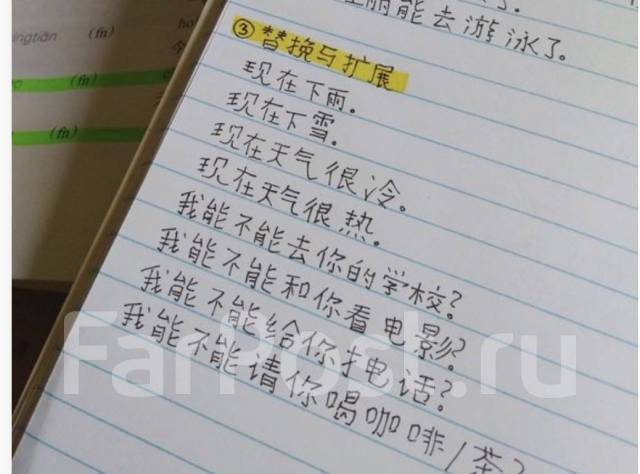 丽能去游泳了。
ngtiān (fn)
(fn)
(fn)
③替换与扩展
现在下雨。
现在下雪。
现在天气很冷。
现在天气很热。
我能不能去你的学校?
我能不能和你看电影?
我能不能给你打电话?
我能不能请你喝咖啡/茶?
FarPost.ru